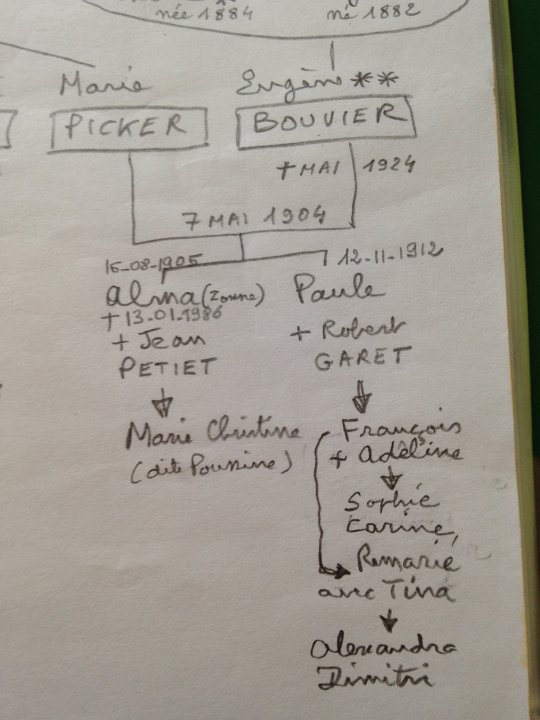 née 1884
né 1882
Marie
PICKER
Eugène **
BOUVIER
† MAI 1924
7 MAI 1904
16-08-1905
Alma (Zoune)
† 13.01.1986
+ Jean
PETIET
Marie Christine
(dite Poussine)
12-11-1912
Paule
+ Robert
GARET
François
+ Adeline
Sophie
Karine,
Remarie
avec Tina
Alexandra
Dimitri